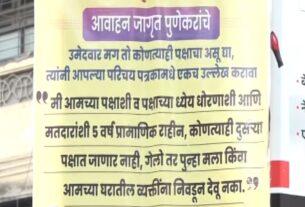 आवाहन जागृत पुणेकरांचे
उमेदवार मग तो कोणत्याही पक्षाचा असू द्या,
त्यांनी आपल्या परिचय पत्रकामधे एकच उल्लेख करावा
“मी आमच्या पक्षाशी व पक्षाच्या ध्येय धोरणाशी आणि
मतदारांशी 5 वर्ष प्रामाणिक राहीन, कोणत्याही दुसऱ्या
पक्षात जाणार नाही, गेलो तर पुन्हा मला किंवा
आमच्या घरातील व्यक्तींना निवडून देवू नका.”